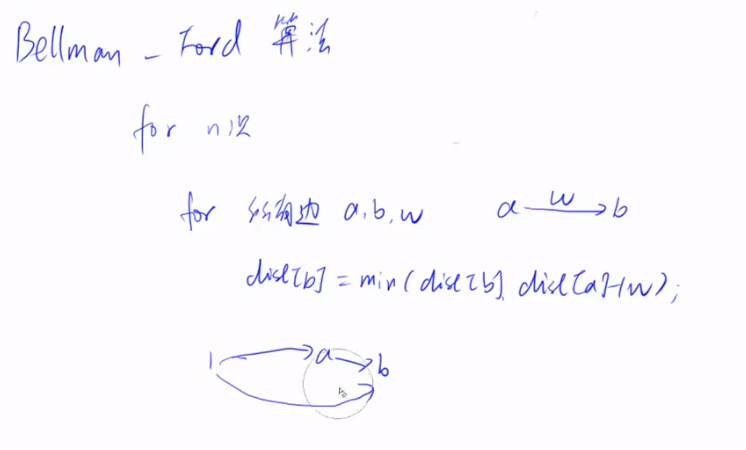 Bellman - Ford 算法
for n次
for 所有边 a,b,w a w b
dist[b] = min(dist[b], dist[a]+w);
1 a b